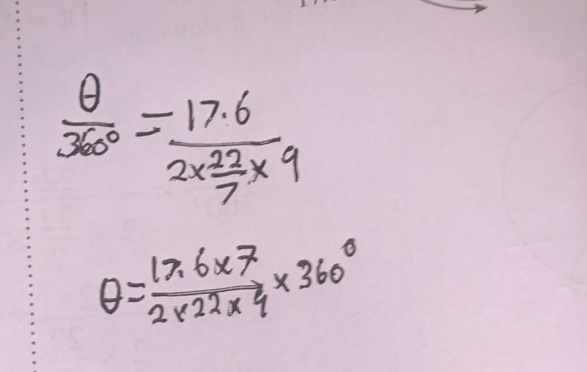 θ/360° = 17.6/(2×22/7×9)
θ = (17.6×7)/(2×22×9) × 360°